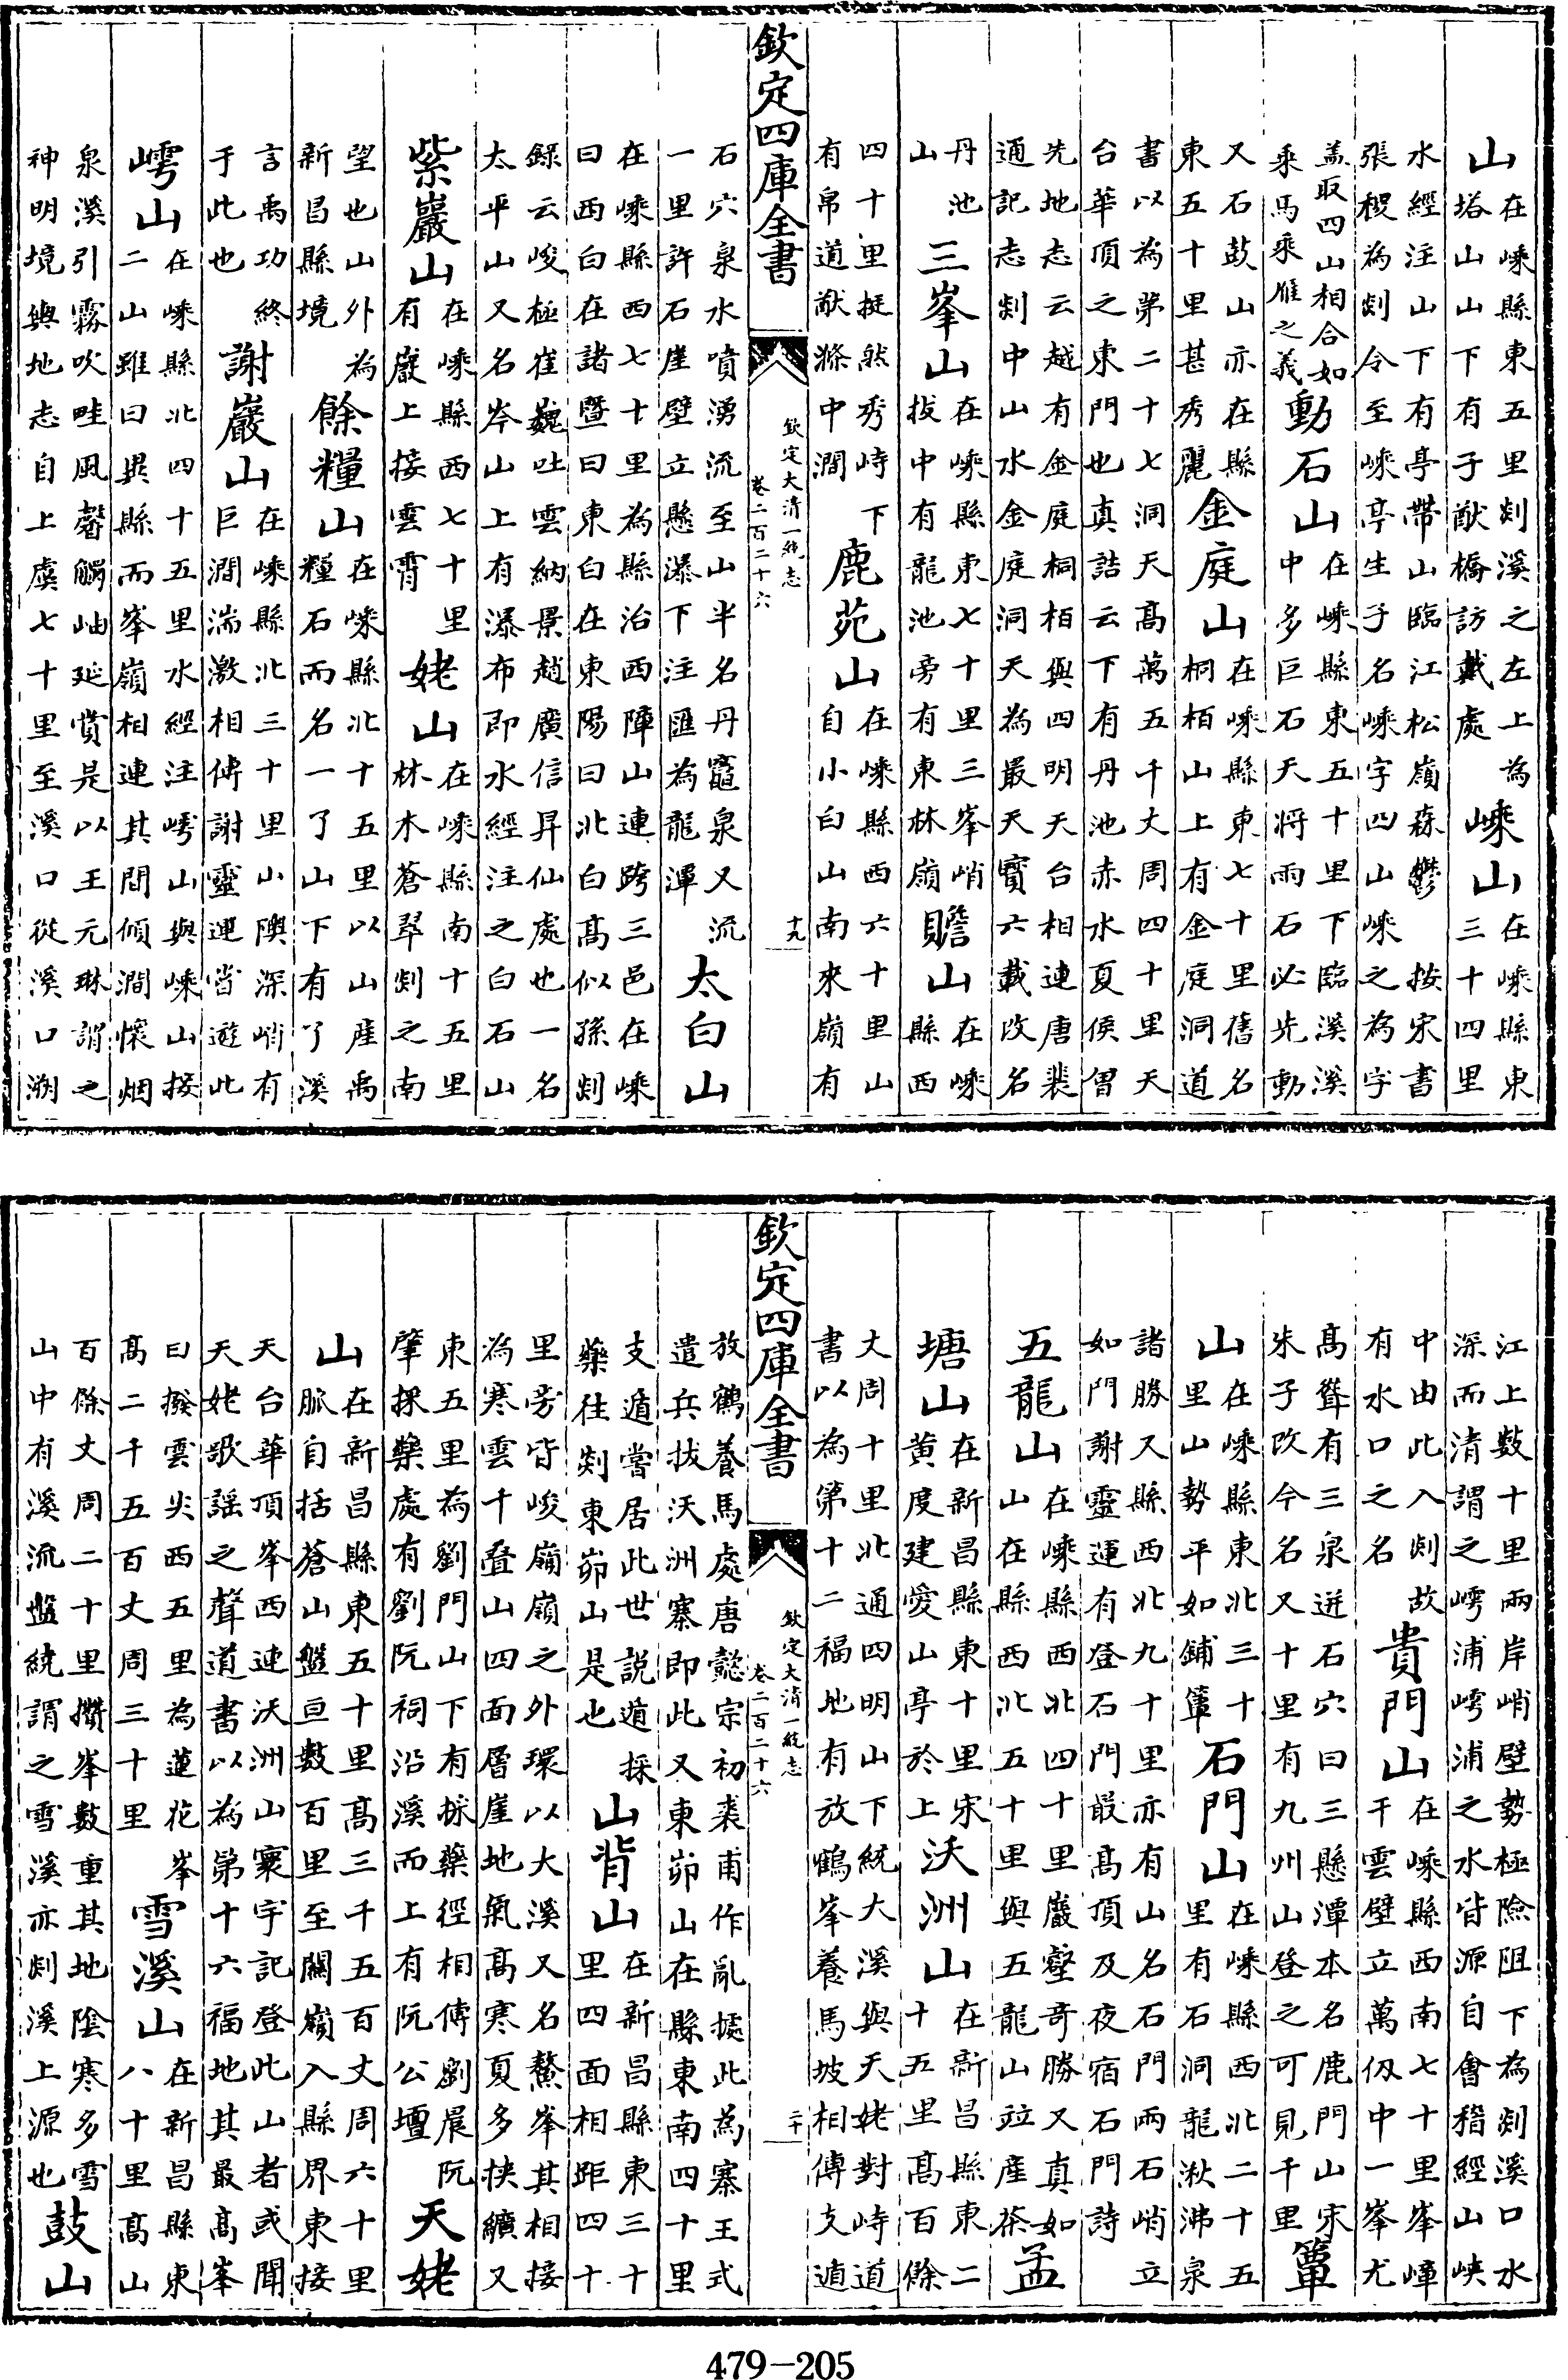 山在嵊縣東五里剡溪之左上為塔山山下有子猷橋訪戴處嵊山在嵊縣東三十四里
水經注山下有亭帶山臨江松嶺森鬱按宋書張稷為剡令至嵊亭生子名嵊字四山嵊之為字
盖取四山相合如乘馬乘雁之義動石山在嵊縣東五十里下臨溪溪中多巨石天將雨石必先動
又石鼓山亦在縣東五十里甚秀麗金庭山在嵊縣東七十里舊名桐栢山上有金庭洞道
書以為第二十七洞天高萬五千丈周四十里天台華頂之東門也真誥云下有丹池赤水夏侯曽
先地志云越有金庭桐栢與四明天台相連唐裴通記志剡中山水金庭洞天為最天寶六載改名
丹池山三峯山在嵊縣東七十里三峯峭拔中有龍池旁有東林嶺瞻山在嵊縣西
四十里挺然秀峙下有帛道猷滌中澗鹿苑山在嵊縣西六十里山自小白山南來嶺有
欽定四庫全書
欽定大清一統志
卷二百二十六
十九
石穴泉水噴湧流至山半名丹竈泉又流一里許石崖壁立懸瀑下注匯為龍潭太白山
在嵊縣西七十里為縣治西陣山連跨三邑在嵊曰西白在諸暨曰東白在東陽曰北白高似孫剡
錄云峻極崔巍吐雲納景趙廣信昇仙處也一名太平山又名岑山上有瀑布即水經注之白石山
紫巖山在嵊縣西七十里有巖上接雲霄姥山在嵊縣南十五里林木蒼翠剡之南
望也山外為新昌縣境餘糧山在嵊縣北十五里以山産禹糧石而名一了山下有了溪
言禹功終于此也謝巖山在嵊縣北三十里山隩深峭有巨澗湍激相傳謝靈運嘗遊此
嶀山在嵊縣北四十五里水經注嶀山與嵊山接二山雖曰異縣而峯嶺相連其間傾澗懷烟
泉溪引霧吹畦風馨觸岫延賞是以王元琳謂之神明境輿地志自上虞七十里至溪口從溪口溯
江上數十里兩岸峭壁勢極險阻下為剡溪口水深而清謂之嶀浦嶀浦之水皆源自會稽經山峽
中由此入剡故有水口之名貴門山在嵊縣西南七十里峯嶂干雲壁立萬仭中一峯尤
高聳有三泉迸石穴曰三懸潭本名鹿門山宋朱子改今名又十里有九州山登之可見千里簞
山在嵊縣東北三十里山勢平如鋪簞石門山在嵊縣西北二十五里有石洞龍湫沸泉
諸勝又縣西北九十里亦有山名石門兩石峭立如門謝靈運有登石門最高頂及夜宿石門詩
五龍山在嵊縣西北四十里巖壑奇勝又真如山在縣西北五十里與五龍山竝產茶孟
塘山在新昌縣東十里宋黄度建愛山亭於上沃洲山在新昌縣東二十五里高百餘
丈周十里北通四明山下統大溪與天姥對峙道書以為第十二福地有放鶴峯養馬坡相傳支遁
欽定四庫全書
欽定大清一統志
卷二百二十六
二十
放鶴養馬處唐懿宗初裘甫作亂據此為寨王式遣兵拔沃洲寨即此又東峁山在縣東南四十里
支遁嘗居此世說遁採藥往剡東峁山是也山背山在新昌縣東三十里四面相距四十
里旁皆峻嶺嶺之外環以大溪又名鰲峯其相接為寒雲千疊山四面層崖地氣高寒夏多挾纊又
東五里為劉門山下有採藥徑相傳劉晨阮肇採藥處有劉阮祠沿溪而上有阮公壇天姥
山在新昌縣東五十里高三千五百丈周六十里脈自括蒼山盤亘數百里至關嶺入縣界東接
天台華頂峯西連沃洲山寰宇記登此山者或聞天姥歌謡之聲道書以為第十六福地其最高峯
曰撥雲尖西五里為蓮花峯高二千五百丈周三十里雪溪山在新昌縣東八十里高山
百餘丈周二十里攢峯數重其地陰寒多雪山中有溪流盤繞謂之雪溪亦剡溪上源也鼓山
479-205